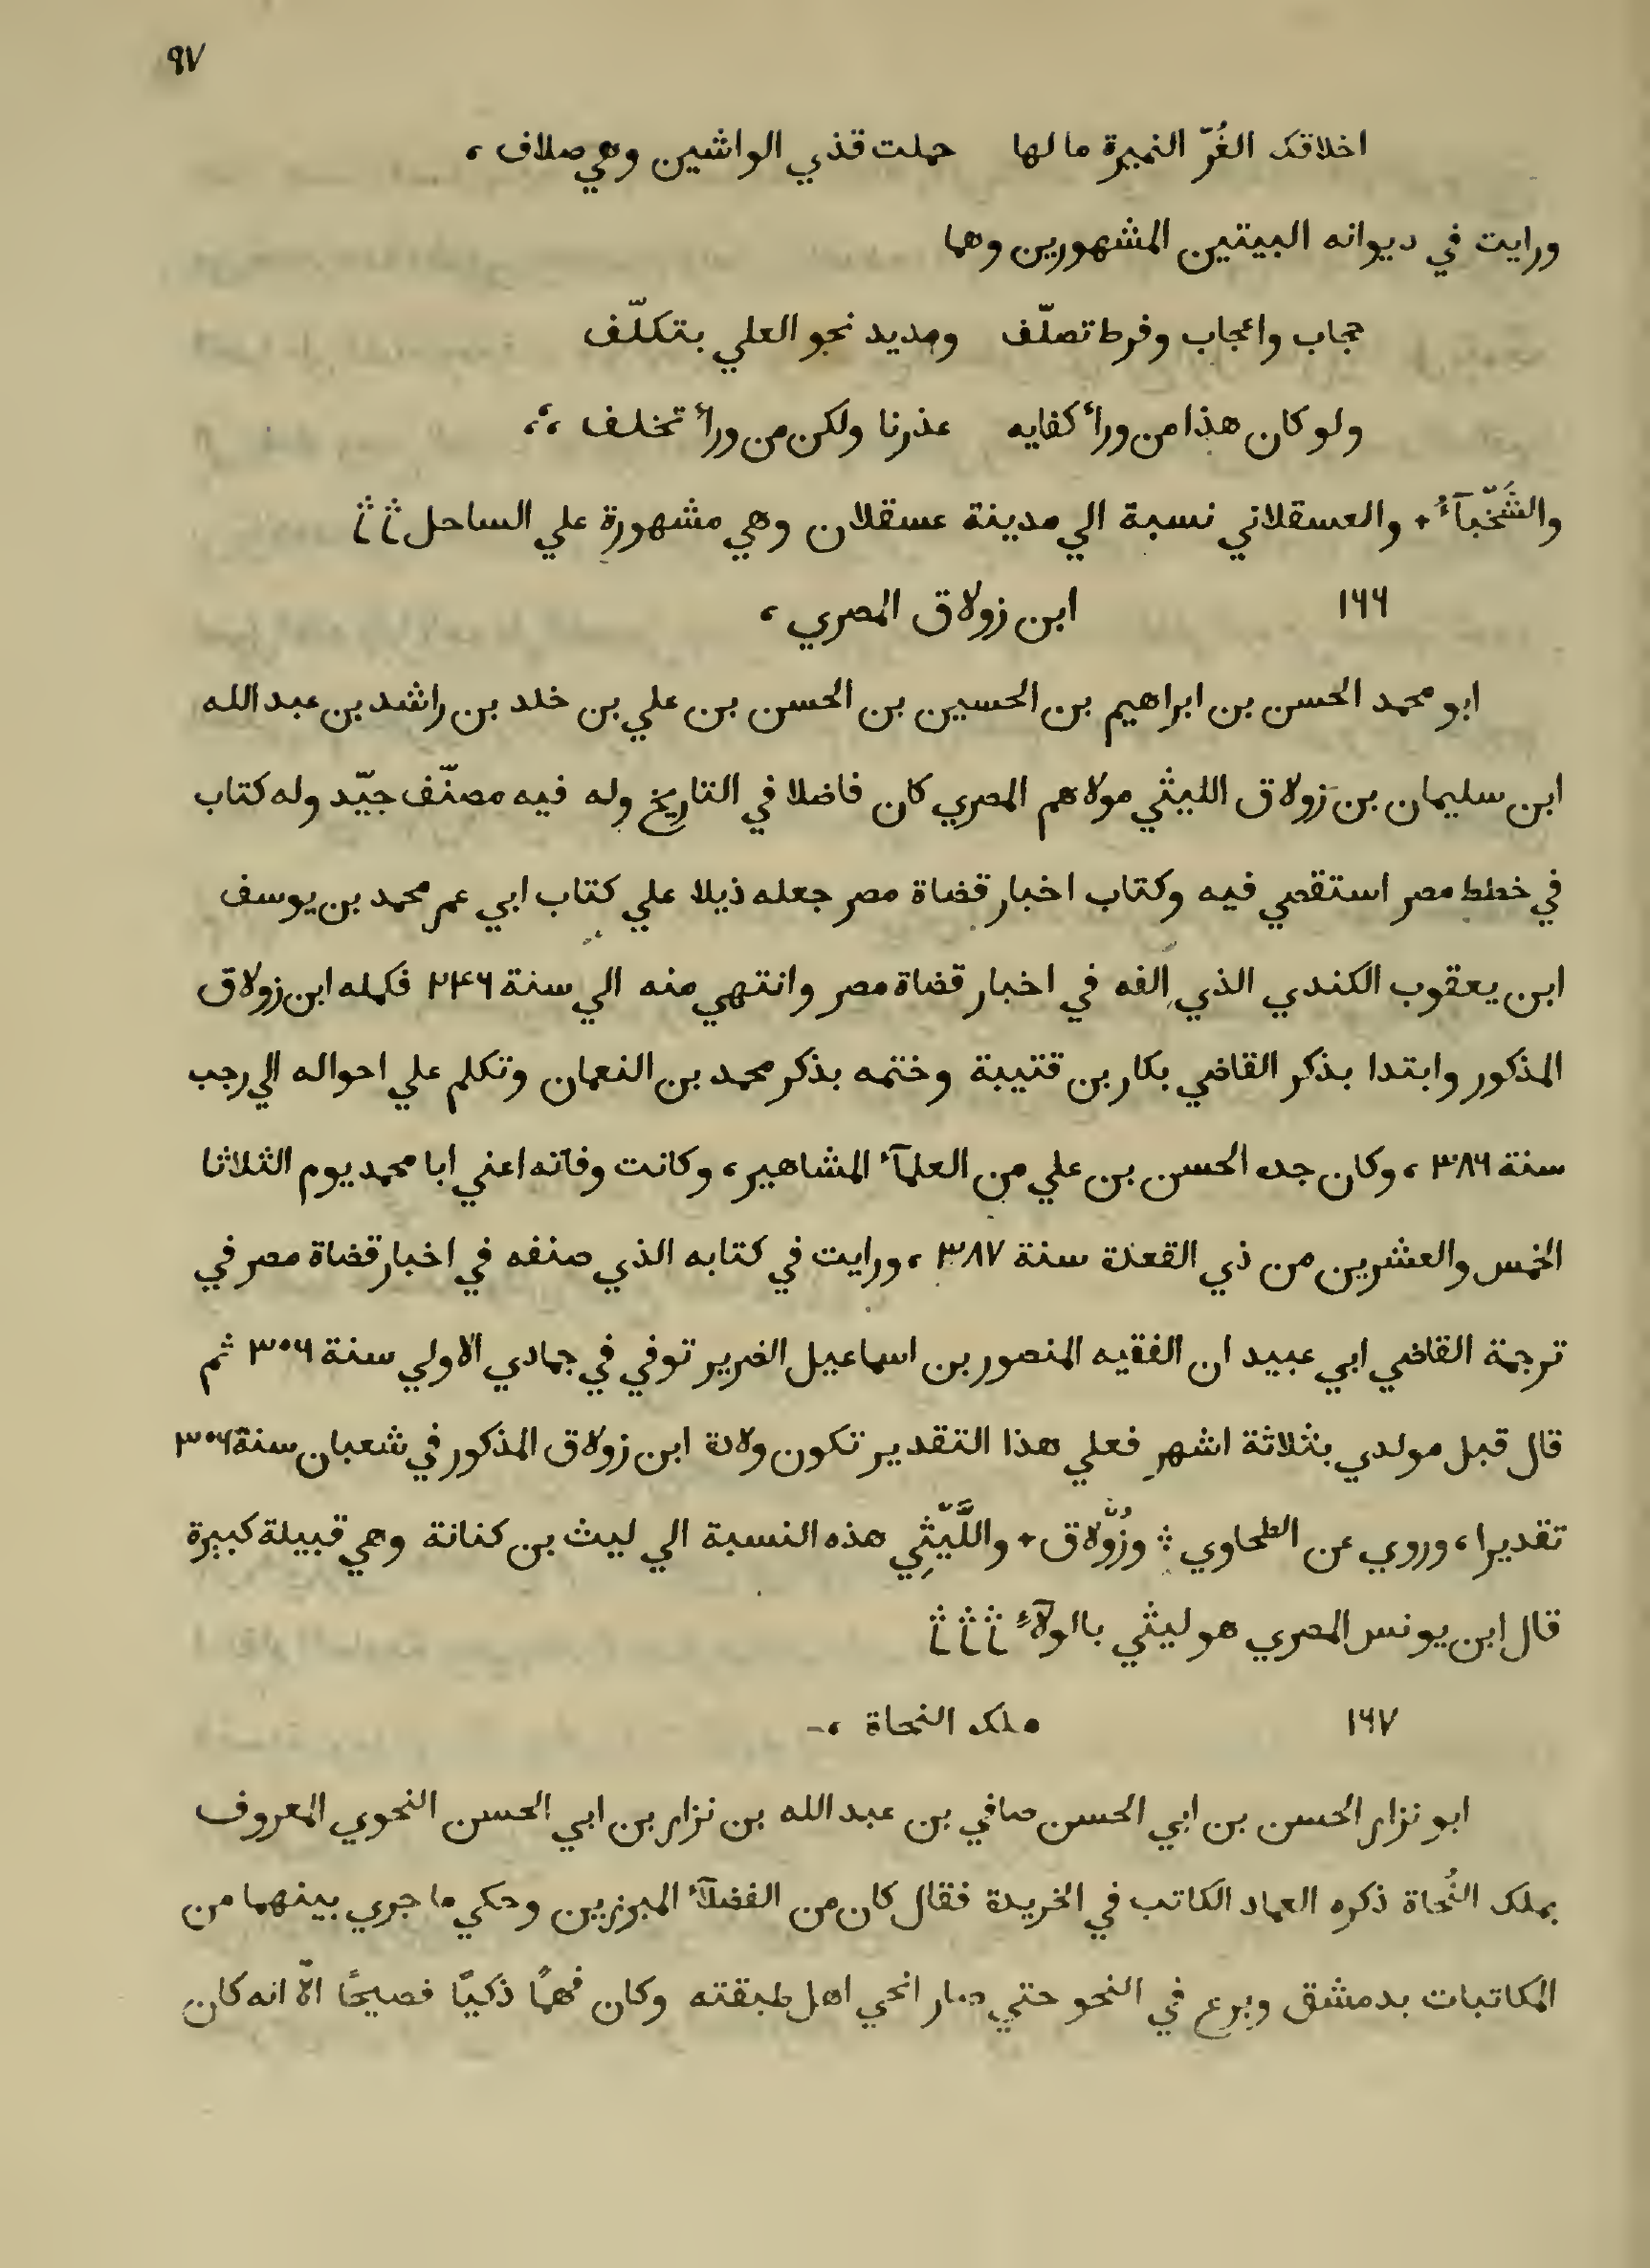 ٩٧
اخلاقك الغُرّ النميرة ما لها حملت قذي الواشين وهي صلاف ،
ورايت في ديوانه البيتين المشهورين وهما
حجاب واعجاب وفرط تصلّف ومديد نحو العلي بتكلّف
ولو كان هذا من ورأ كفايه عذرنا ولكن من ورأ تخلف ،؛
والشَّخّبآءُ ٠ والعسقلاني نسبة الي مدينة عسقلان وهي مشهورة علي الساحل
١٦٦ ابن زولاق المصري ،
ابو محمد الحسن بن ابراهيم بن الحسين بن الحسن بن علي بن خلد بن راشد بن عبد الله
ابن سليمان بن زولاق الليثي مولاهم المصري كان فاضلا في التاريخ وله فيه مصنّف جيّد وله كتاب
في خطط مصر استقصي فيه وكتاب اخبار قضاة مصر جعله ذيلا علي كتاب ابي عمر محمد بن يوسف
ابن يعقوب الكندي الذي الفه في اخبار قضاة مصر وانتهي منه الي سنة ٢٤٦ فكمله ابن زولاق
المذكور وابتدا بذكر القاضي بكار بن قتيبة وختمه بذكر محمد بن النعمان وتكلم علي احواله الي رجب
سنة ٣٨٦ ، وكان جده الحسن بن علي من العلمآء المشاهير ، وكانت وفاته اعني ابا محمد يوم الثلاثا
الخمس والعشرين من ذي القعدة سنة ٣٨٧ ، ورايت في كتابه الذي صنفه في اخبار قضاة مصر في
ترجمة القاضي ابي عبيد ان الفقيه المنصور بن اسماعيل الضرير توفي في جمادي الاولي سنة ٣٠٦ ثم
قال قبل مولدي بثلاثة اشهر فعلي هذا التقدير تكون ولادة ابن زولاق المذكور في شعبان سنة ٣٠٦
تقديرا ، وروي عن الطحاوي ؛ وزُوْلاق ٠ واللَّيْثِي هذه النسبة الي ليث بن كنانة وهي قبيلة كبيرة
قال ابن يونس المصري هو ليثي بالولآء
١٦٧ ملك النحاة ،
ابو نزار الحسن بن ابي الحسن صافي بن عبد الله بن نزار بن ابي الحسن النحوي المعروف
بملك النُحاة ذكره العماد الكاتب في الخريدة فقال كان من الفضلآء المبرزين وحكي ما جري بينهما من
المكاتبات بدمشق وبرع في النحو حتي صار انحي اهل طبقته وكان فهمًا ذكيًا فصيحًا الّا انه كان